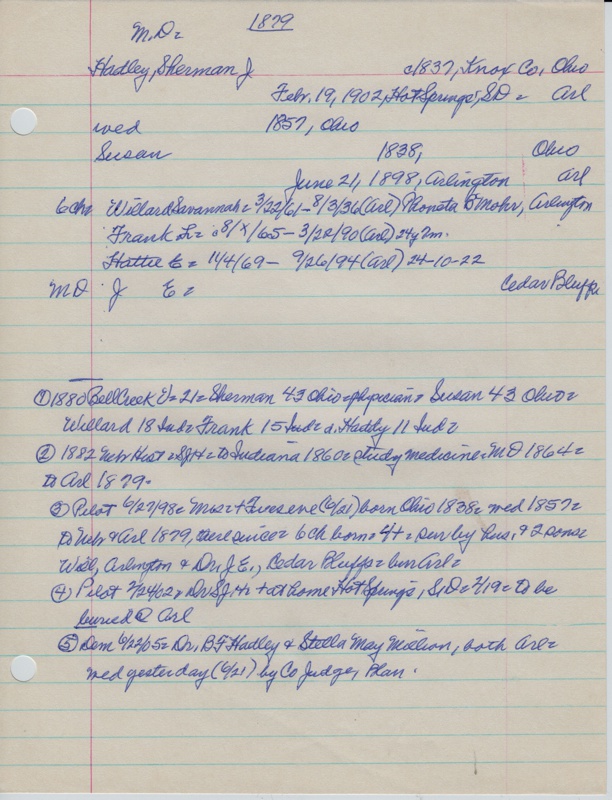 1879
M.D =
Hadley, Sherman J c1837, Knox Co, Ohio
Febr. 19, 1902, Hot Springs, SD = Arl
wed 1857, Ohio
Susan 1838, Ohio
June 21, 1898, Arlington Arl
6 ch = Willard Savannah = 3/22/61 - 8/3/36 (Arl) Mohr, Arlington
Frank L = 8/X/65 - 3/22/90 (Arl) 24y 7m.
Hattie E = 11/4/69 - 9/26/94 (Arl) 24-10-22
MD J E = Cedar Bluffs
① 1880 Bell Creek V = 21 = Sherman 43 Ohio = physician = Susan 43 Ohio =
Willard 18 Ind = Frank 15 Ind = d. Haddy 11 Ind =
② 1882 Neb Hist = SJH = to Indiana 1860 = study medicine = MD 1864 =
to Arl 1879.
③ Pilot 6/27/98 = Mrs = + (6/21) born Ohio 1838 = wed 1857 =
to Neb & Arl 1879, here since = 6 ch born = 4 + = sur by hus, + 2 sons =
Will, Arlington & Dr. J E., Cedar Bluffs = bur Arl =
④ Pilot 2/24/02 = Dr SJH = + at home Hot Springs, S.D = 2/19 = to be
buried @ Arl
⑤ Dem 6/22/05 = Dr. BF Hadley & Stella May, both Arl =
wed yesterday (6/21) by Co Judge,